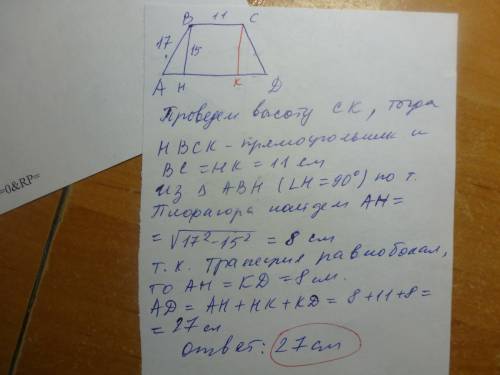 B 11 C
17
15
A H K D
Проведем высоту СК, тогда
HBCK - прямоугольник и
BC = HK = 11 см
из Δ ABH (∠H = 90°) по т.
Пифагора найдем AH =
= √17² - 15² = 8 см
т.к. трапеция равнобокая,
то AH = KD = 8 см.
AD = AH + HK + KD = 8 + 11 + 8 =
= 27 см
ответ: 27 см
=0&RP=